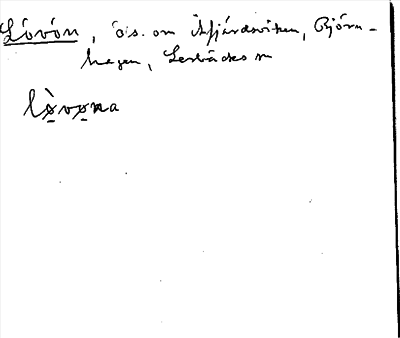 Lövön, ös. om Åfjärdsviken, Björn-
hagen, Lerbäcks sn
lòvona